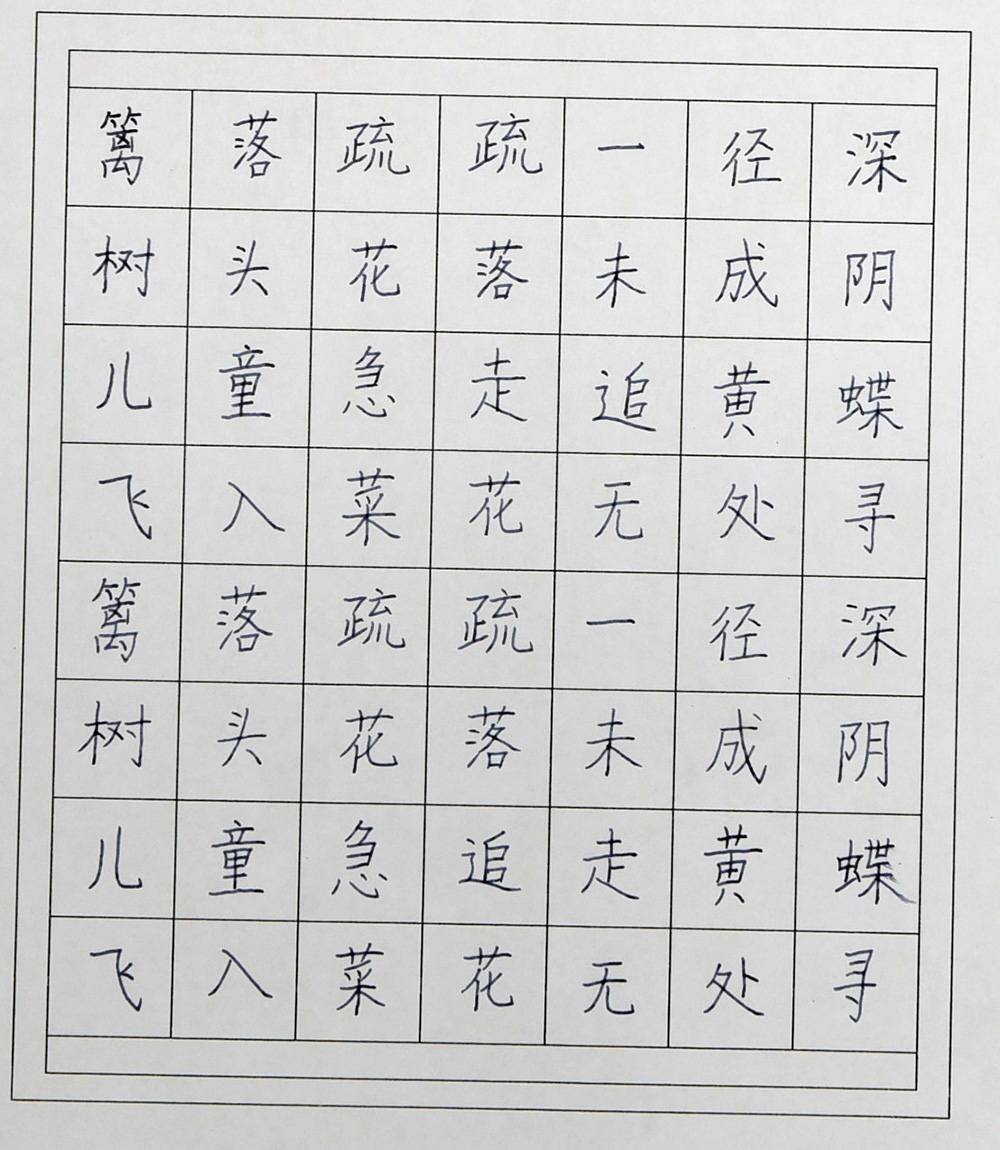 篱落疏疏一径深
树头花落未成阴
儿童急走追黄蝶
飞入菜花无处寻
篱落疏疏一径深
树头花落未成阴
儿童急追走黄蝶
飞入菜花无处寻